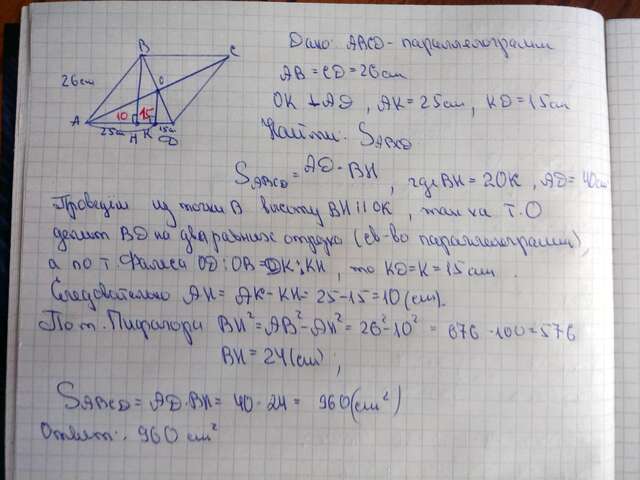 Дано: ABCD - параллелограмм
AB = CD = 26 см
OK ⊥ AD, AK = 25 см, KD = 15 см
Найти: SABCD
26 см
A
B
C
D
O
H
K
25 см
15 см
10
15
SABCD = AD · BH, где BH = 2OK, AD = 40 см
Проведём из точки B высоту BH || OK, так как т. O
делит BD на два равных отрезка (св-во параллелограмма),
а по т Фалеса OD : OB = DK : KH, то KD = K = 15 см.
Следовательно AH = AK - KH = 25 - 15 = 10 (см).
По т. Пифагора BH² = AB² - AH² = 26² - 10² = 676 - 100 = 576
BH = 24 (см);
SABCD = AD · BH = 40 · 24 = 960 (см²)
Ответ: 960 см²